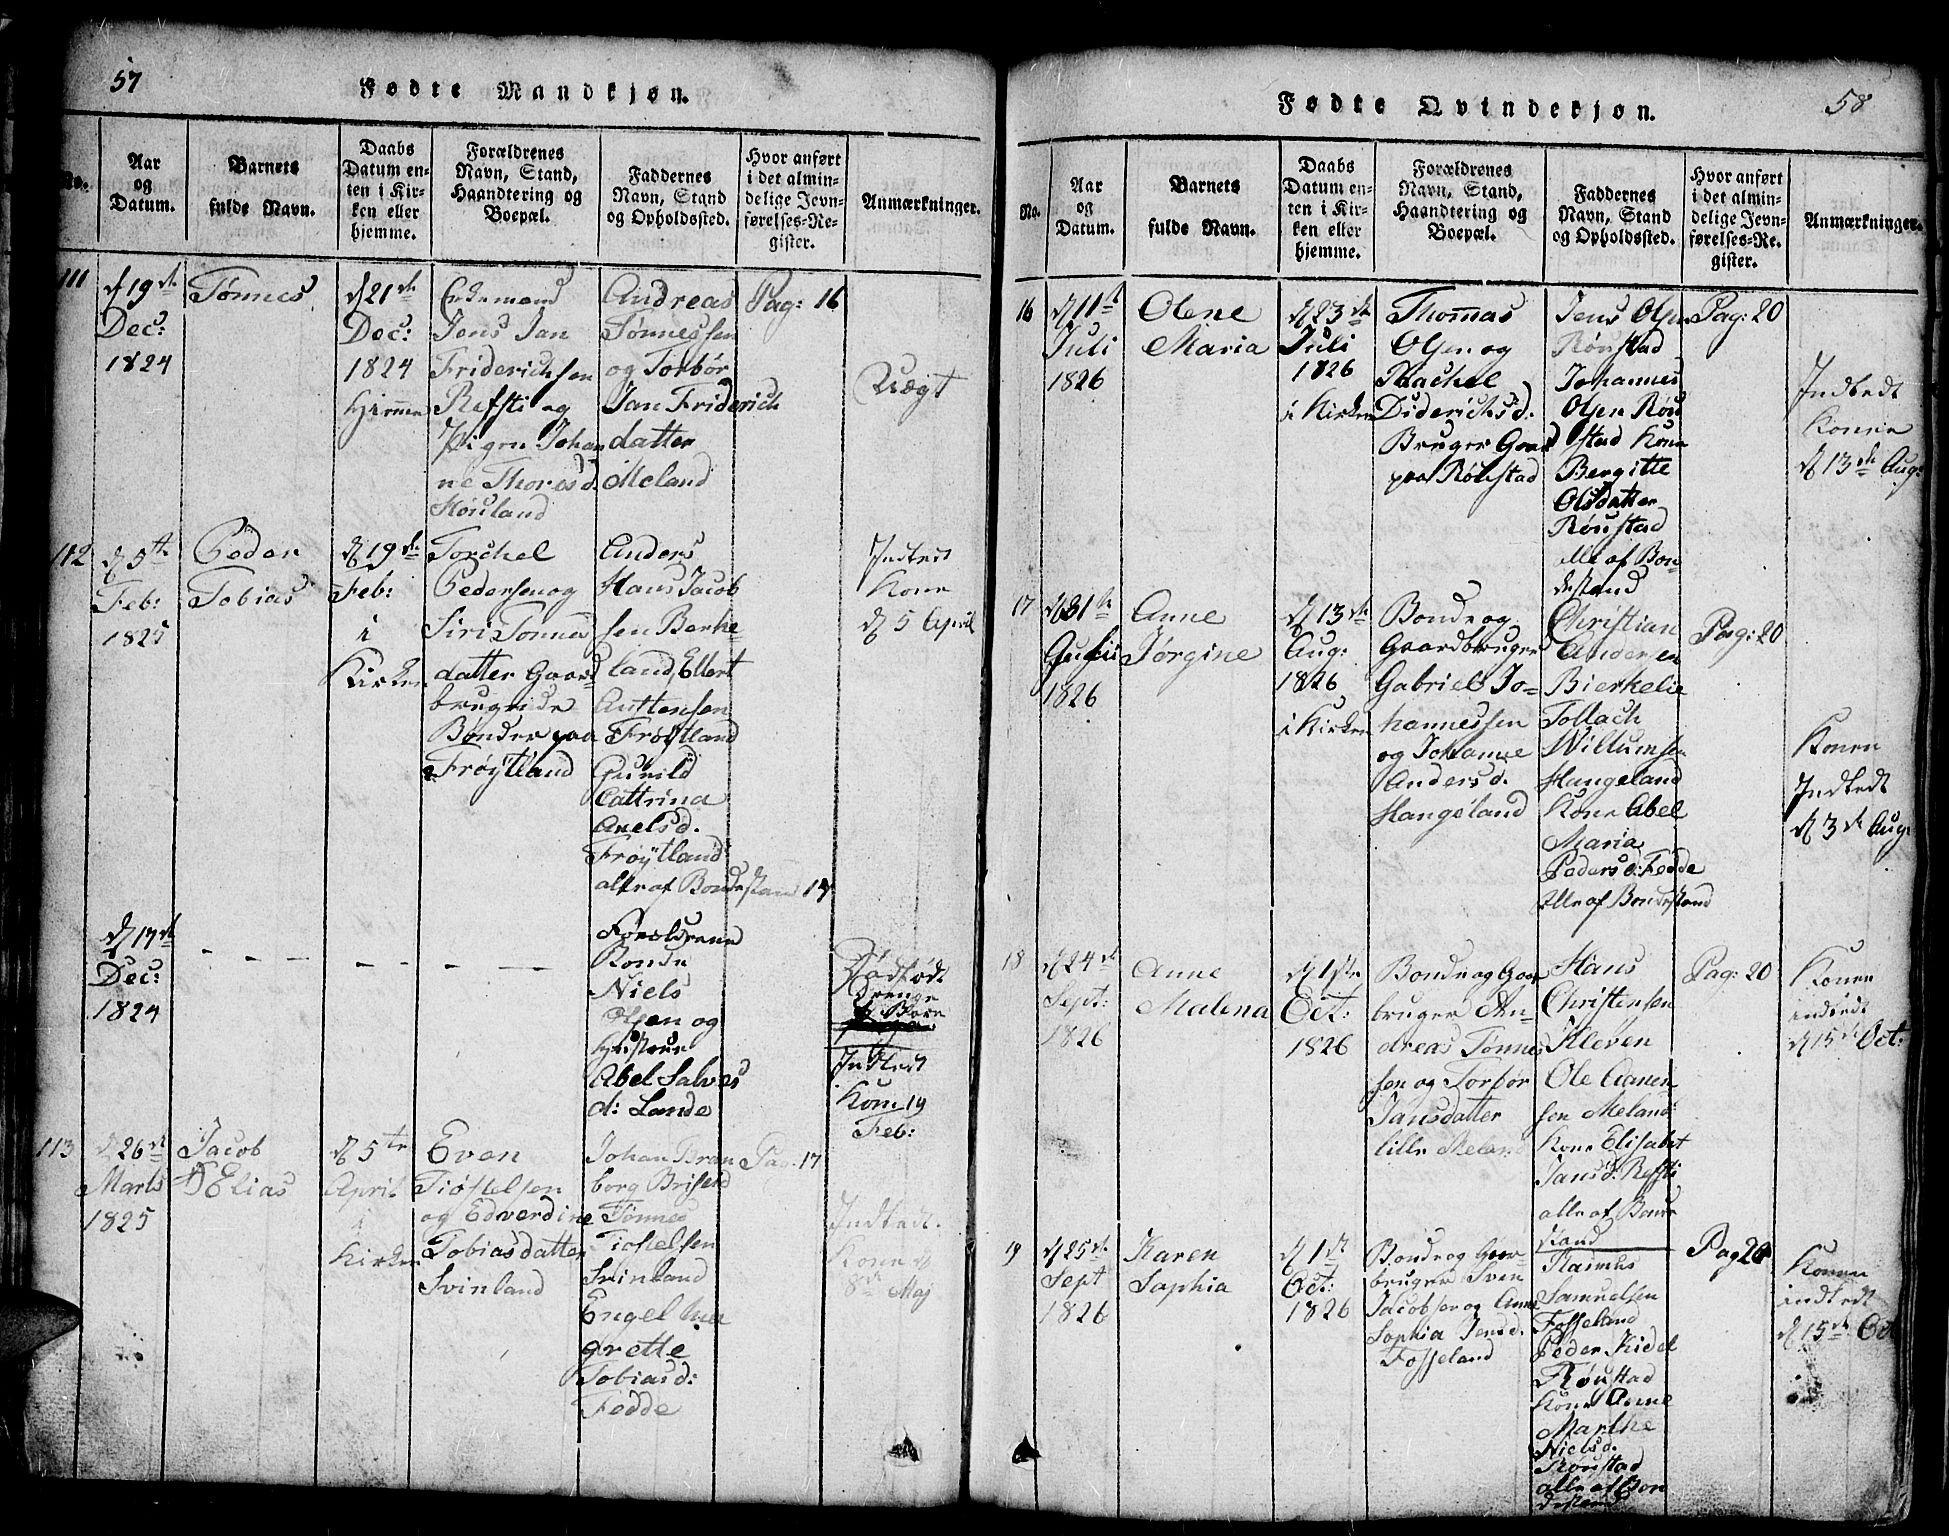 57
Fødte Mandkjøn.
No.
Aar
og
Datum.
Barnets
fulde Navn.
Daabs
Datum en-
ten i Kir-
ken eller
hjemme.
Forældrenes
Navn, Stand,
Haandtering og
Boepæl.
Faddernes
Navn, Stand
og Opholdssted.
Hvor anført
i det almin-
delige Jevn-
førelses-Re-
gister.
Anmærkninger.
111
d 19de
Dec:
1824
Tønnes
d 21de
Dec:
1824
Hiemme
Enkemand
Jens Jan
Friderichsen
Refsti og
Pigen Johan
ne Thoresd.
Høuland
Andreas
Tønnessen
og Torbør
Jan Friderich
datter
Meland
Pag: 16
Uægt
112
d 5te
Feb:
1825
Peder
Tobias
d 19de
Feb:
i
Kirken
Torchel
Pedersen og
Siri Tønnes
datter Gaard
brugende
Bønder paa
Frøytland
Anders
Hans Jacob
sen Berke
land, Elbert
Frøytland
Gunild
Cattrina
Axelsd.
Frøytland
alle af Bondestand
17
Indledt
Kone
d 5 April
d 17de
Dec:
1824
Forældrene
Bonde
Niels
Olsen og
Hustrue
Abel Salves
d: Lande
Dødfødt
Drenge
Barn
Indledt
Kone 19
Feb:
113
d 26de
Marts
1825
Jacob
Elias
d 5te
April
i
Kirken
Even
Tiøstelsen
og Edverdine
Tobiasdatter
Svinland
Johan Bran
borg Briseid
Tønnes
Tiostelsen
Svinland
Engel Mar
grette
Tobiasd:
Fedde
Pag. 17
Indledt.
Kone d
8de Maj
58
Fødte Qvindekjøn.
No.
Aar
og
Datum.
Barnets
fulde Navn.
Daabs
Datum en-
ten i Kir-
ken eller
hjemme.
Forældrenes
Navn, Stand,
Haandtering og
Boepæl.
Faddernes
Navn, Stand
og Opholdssted.
Hvor anført
i det almin-
delige Jevn-
førelses-Re-
gister.
Anmærkninger.
16
d 11te
Juli
1826
Olene
Maria
d 23de
Juli
1826
i Kirken
Thomas
Olsen og
Rachel
Diderichsd.
Bruger Gaard
paa Rønstad
Jens Olsen
Rønstad
Johannes
Olsen Røn
stad Kone
Bergitte
Olsdatter
Rønstad
alle af Bon-
destand
Pag: 20
Indledt
Konen
d 13de Aug:
17
d 31te
Julii
1826
Anne
Jørgine
d 13de
Aug:
1826
i Kirken
Bonde og
Gaardbruger
Gabriel Jo-
hannessen
og Johanne
Andersd.
Hangeland
Christian
Andersen
Bierkelie
Tollach
Willumsen
Hangeland
Kone Abel
Maria
Pedersd: Fedde
Alle af Bondestand
Pag: 20
Konen
Indledt
d 3de Aug:
18
d 24de
Sept:
1826
Anne
Malena
d 1ste
Oct:
1826
Bonde og Gaar
bruger An-
dreas Tønnes
sen og Torbør
Jansdatter
lille Meland
Hans
Christensen
Kleven
Ole Aanen
sen Meland
Kone Elisabet
Jansd: Refsti
alle af Bonde
stand
Pag: 20
Konen
indledt
d 15de Oct:
19
d 25de
Sept
1826
Karen
Saphia
d 1st
Oct:
1826
Bonde og Gaar
bruger Sven
Jacobsen og Anne
Sophia Jensd.
Fosseland
Rasmus
Samuelsen
Fosseland
Peder Kidel
Rønstad
Kone Anne
Marthe
Nielsd.
Rønstad
alle af Bon
destand
Pag 20
Konen
indledt
d 15de Oct